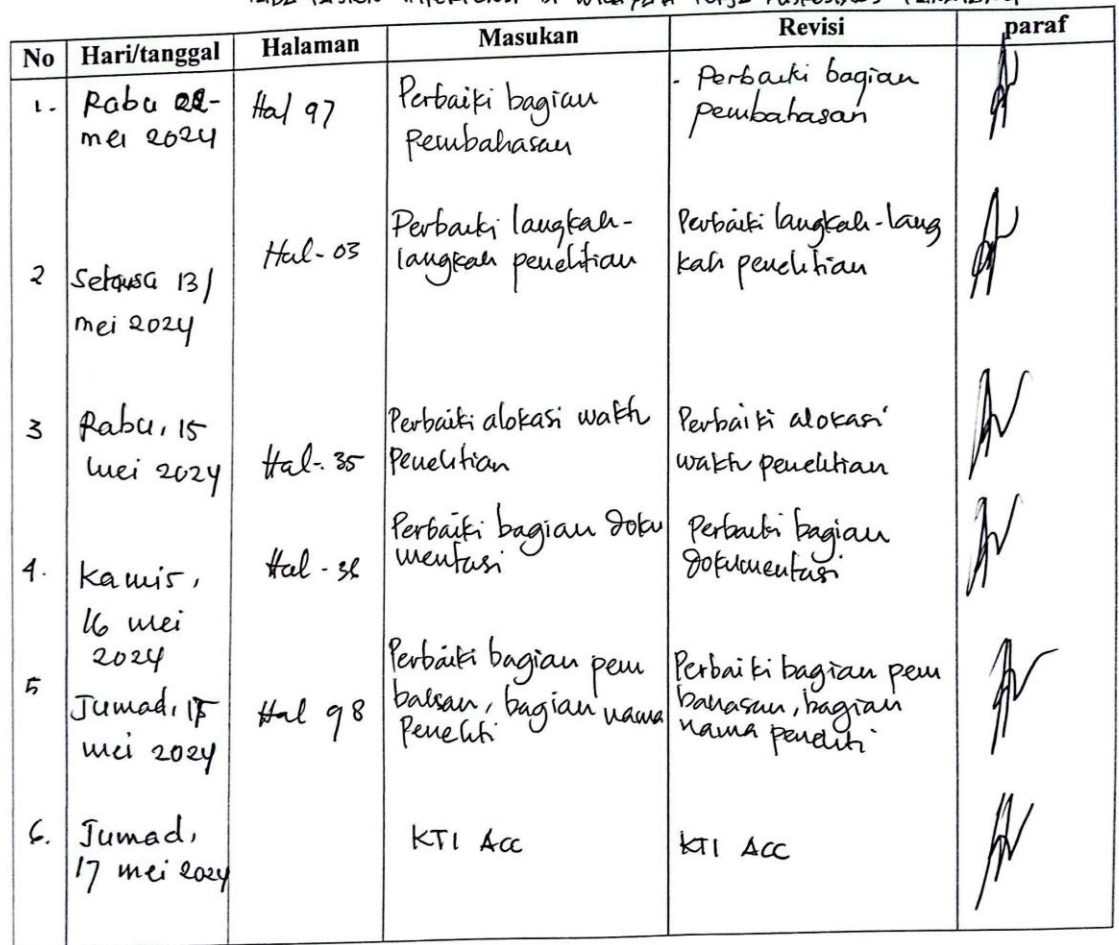 Pada Pasien Hipertensi Di Wilayah Kerja Puskesmas
No Hari/tanggal Halaman Masukan Revisi paraf
1. Rabu
mei 2024
Hal 97
Perbaiki bagian
Pembahasan
- Perbaiki bagian
pembahasan
2 Selasa 13/
mei 2024
Hal-03
Perbaiki langkah-
langkah penelitian
Perbaiki langkah-lang
kah penelitian
3 Rabu, 15
mei 2024
Hal-35
Perbaiki alokasi waktu
Penelitian
Perbaiki alokasi
waktu penelitian
4. Kamis,
16 mei
2024
Hal-
Perbaiki bagian doku
mentasi
Perbaiki bagian
dokumentasi
5 Jumad,
mei 2024
Hal 98
Perbaiki bagian pem
bahsan, bagian nama
Peneliti
Perbaiki bagian pem
bahasan, bagian
nama peneliti
6. Jumad,
17 mei 2024
KTI Acc
KTI Acc